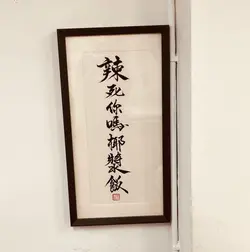 辣死你嗎椰漿飯